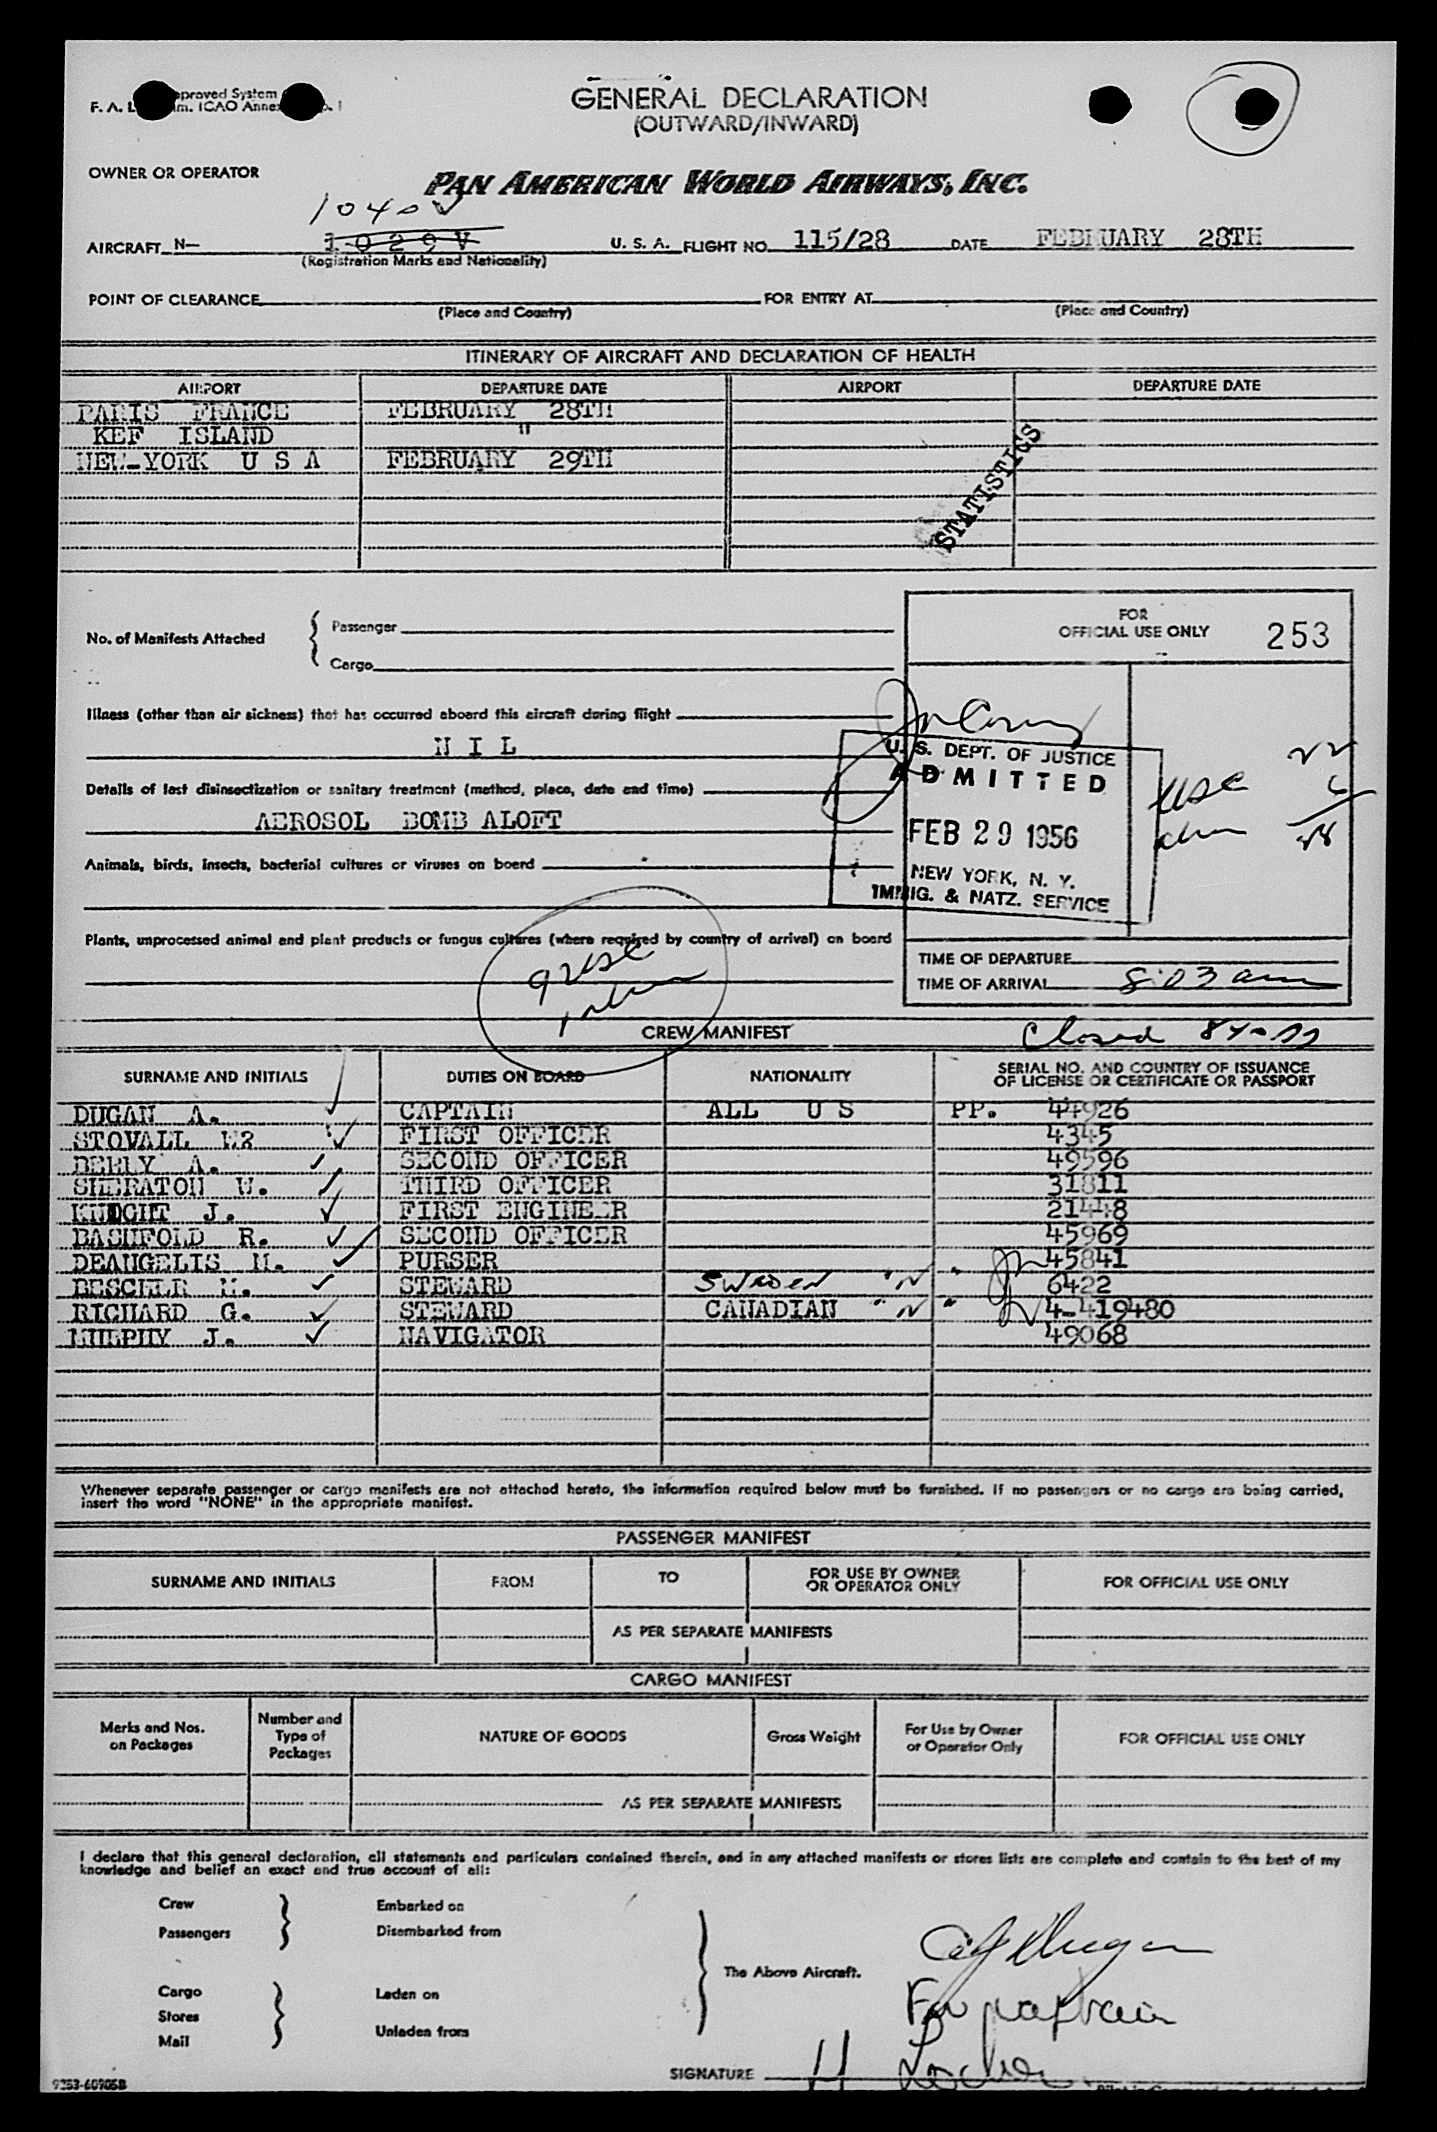 GENERAL DECLARATION
(OUTWARD/INWARD)
OWNER OR OPERATOR
PAN AMERICAN WORLD AIRWAYS, INC.
1040V
AIRCRAFT N- 1029V U. S. A. FLIGHT NO. 115/28 DATE FEBRUARY 28TH
(Registration Marks and Nationality)
POINT OF CLEARANCE FOR ENTRY AT
(Place and Country) (Place and Country)
ITINERARY OF AIRCRAFT AND DECLARATION OF HEALTH
AIRPORT DEPARTURE DATE AIRPORT DEPARTURE DATE
PARIS FRANCE FEBRUARY 28TH
KEF ISLAND "
NEW-YORK U S A FEBRUARY 29TH
STATISTICS
FOR
OFFICIAL USE ONLY 253
No. of Manifests Attached { Passenger
Cargo
Illness (other than air sickness) that has occurred aboard this aircraft during flight
N I L
Details of last disinsectization or sanitary treatment (method, place, date and time)
AEROSOL BOMB ALOFT
Animals, birds, insects, bacterial cultures or viruses on board
U. S. DEPT. OF JUSTICE
ADMITTED
FEB 29 1956
NEW YORK, N. Y.
IMMIG. & NATZ. SERVICE
USC 22
6
Plants, unprocessed animal and plant products or fungus cultures (where required by country of arrival) on board
9 USC
TIME OF DEPARTURE
TIME OF ARRIVAL 8:03 am
CREW MANIFEST
Closed
SURNAME AND INITIALS DUTIES ON BOARD NATIONALITY SERIAL NO. AND COUNTRY OF ISSUANCE
OF LICENSE OR CERTIFICATE OR PASSPORT
DUGAN A. CAPTAIN ALL U S PP. 44926
STOVALL FIRST OFFICER 4345
A. SECOND OFFICER 49596
SHERATON W. THIRD OFFICER 31811
J. FIRST ENGINEER 21448
BASHFOLD R. SECOND OFFICER 45969
DEANGELIS M. PURSER 45841
M. STEWARD SWEDEN "N" 6422
RICHARD G. STEWARD CANADIAN "N" 4-419480
MURPHY J. NAVIGATOR 49068
Whenever separate passenger or cargo manifests are not attached hereto, the information required below must be furnished. If no passengers or no cargo are being carried,
insert the word "NONE" in the appropriate manifest.
PASSENGER MANIFEST
SURNAME AND INITIALS FROM TO FOR USE BY OWNER
OR OPERATOR ONLY FOR OFFICIAL USE ONLY
AS PER SEPARATE MANIFESTS
CARGO MANIFEST
Marks and Nos.
on Packages Number and
Type of
Packages NATURE OF GOODS Gross Weight For Use by Owner
or Operator Only FOR OFFICIAL USE ONLY
AS PER SEPARATE MANIFESTS
I declare that this general declaration, all statements and particulars contained therein, and in any attached manifests or stores lists are complete and contain to the best of my
knowledge and belief an exact and true account of all:
Crew Embarked on
Passengers Disembarked from
The Above Aircraft.
Cargo Laden on
Stores
Mail Unladen from
SIGNATURE
9353-60905B